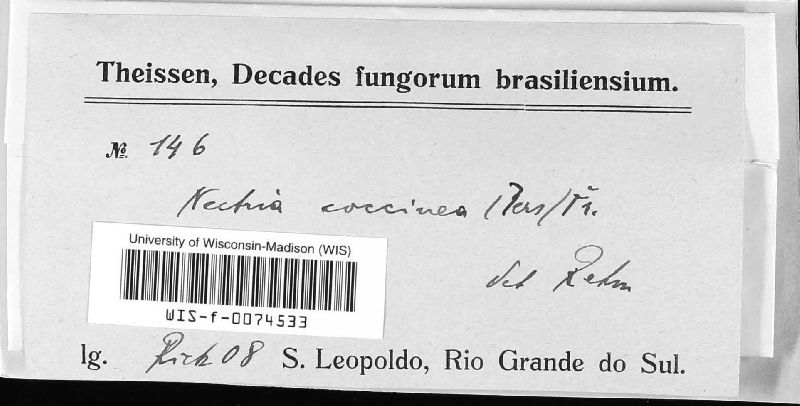 Theissen, Decades fungorum brasiliensium.
№. 146
Nectria coccinea (Pers/Fr.
det Rehm
University of Wisconsin-Madison (WIS)
WIS-f-0074533
lg. Rick 08 S. Leopoldo, Rio Grande do Sul.